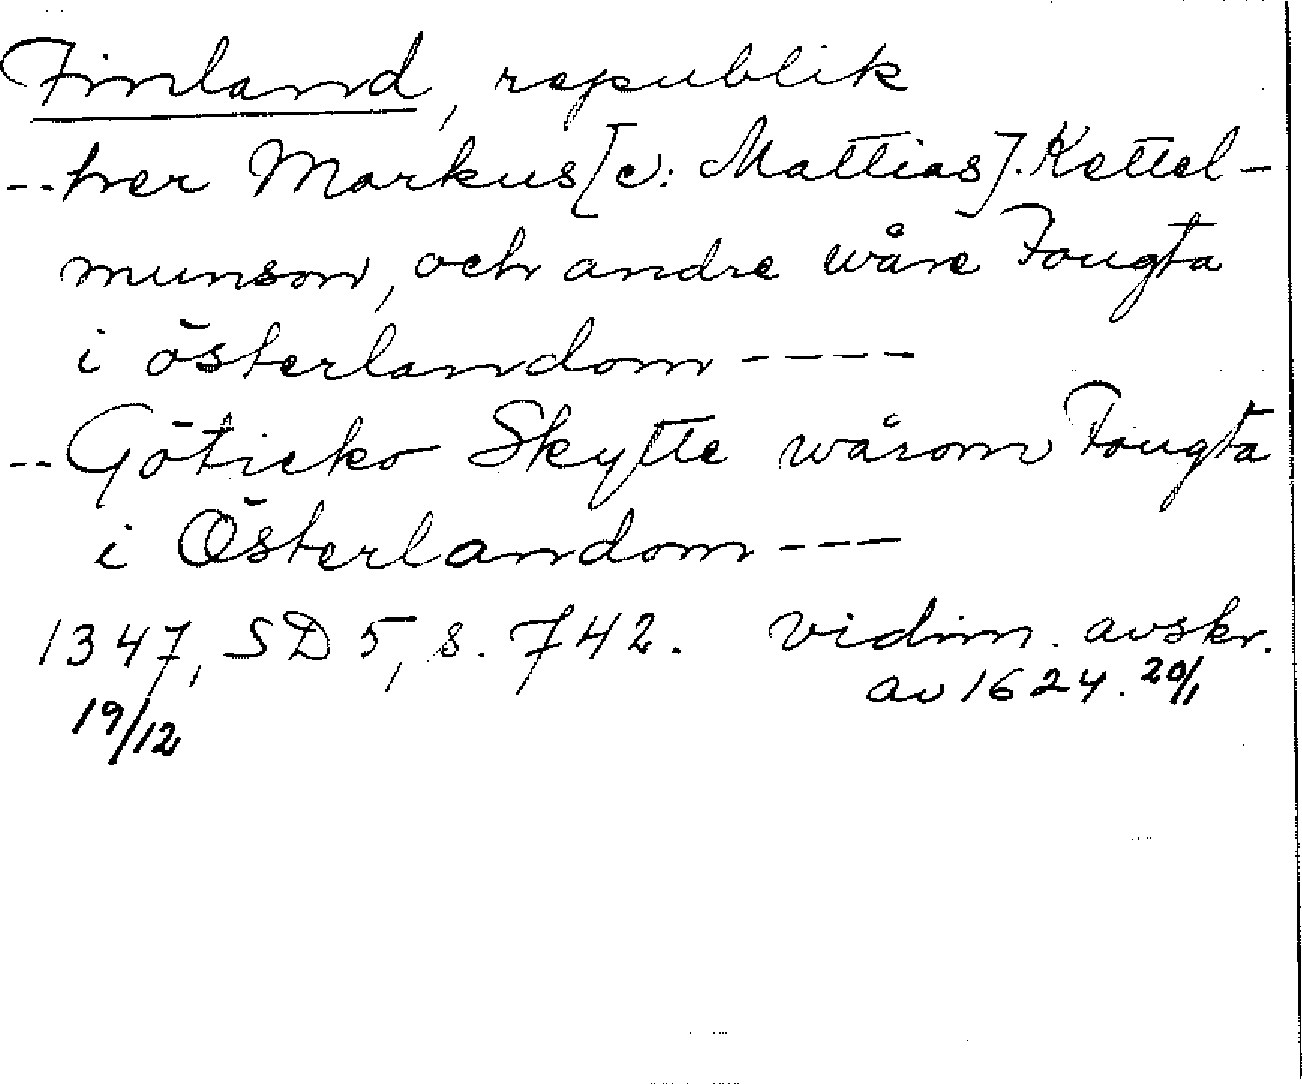 Finland, republik
--her Markus [ɔ: Mattias]. Kettel-
munson, och andre wåre Fougta
i österlandom ----
--Götticko Skytte wårom Fougta
i Österlandom ---
1347, SD 5, s. 742. vidim. avskr.
19/12 av 1624. 20/1